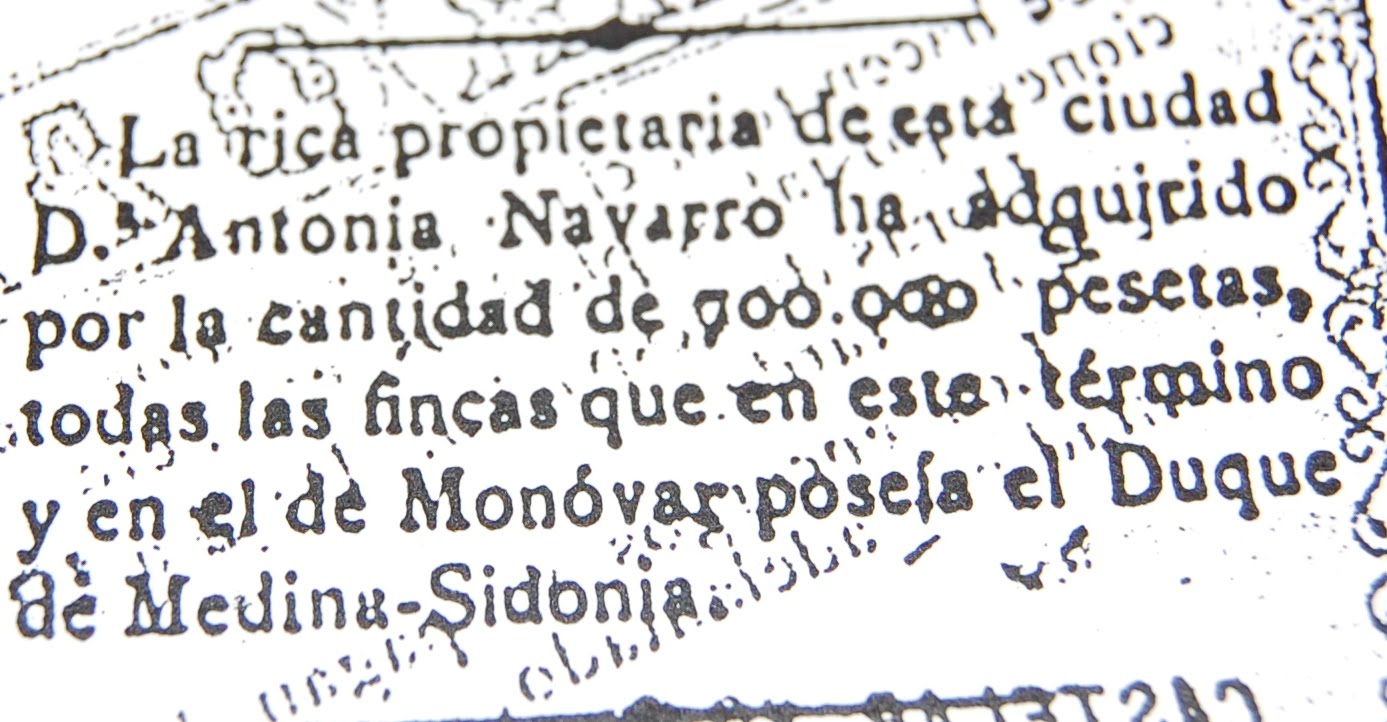 La rica propietaria de esta ciudad
D.ª Antonia Navarro ha adquirido
por la cantidad de 700.000 pesetas,
todas las fincas que en este término
y en el de Monóvar poseía el Duque
de Medina-Sidonia.